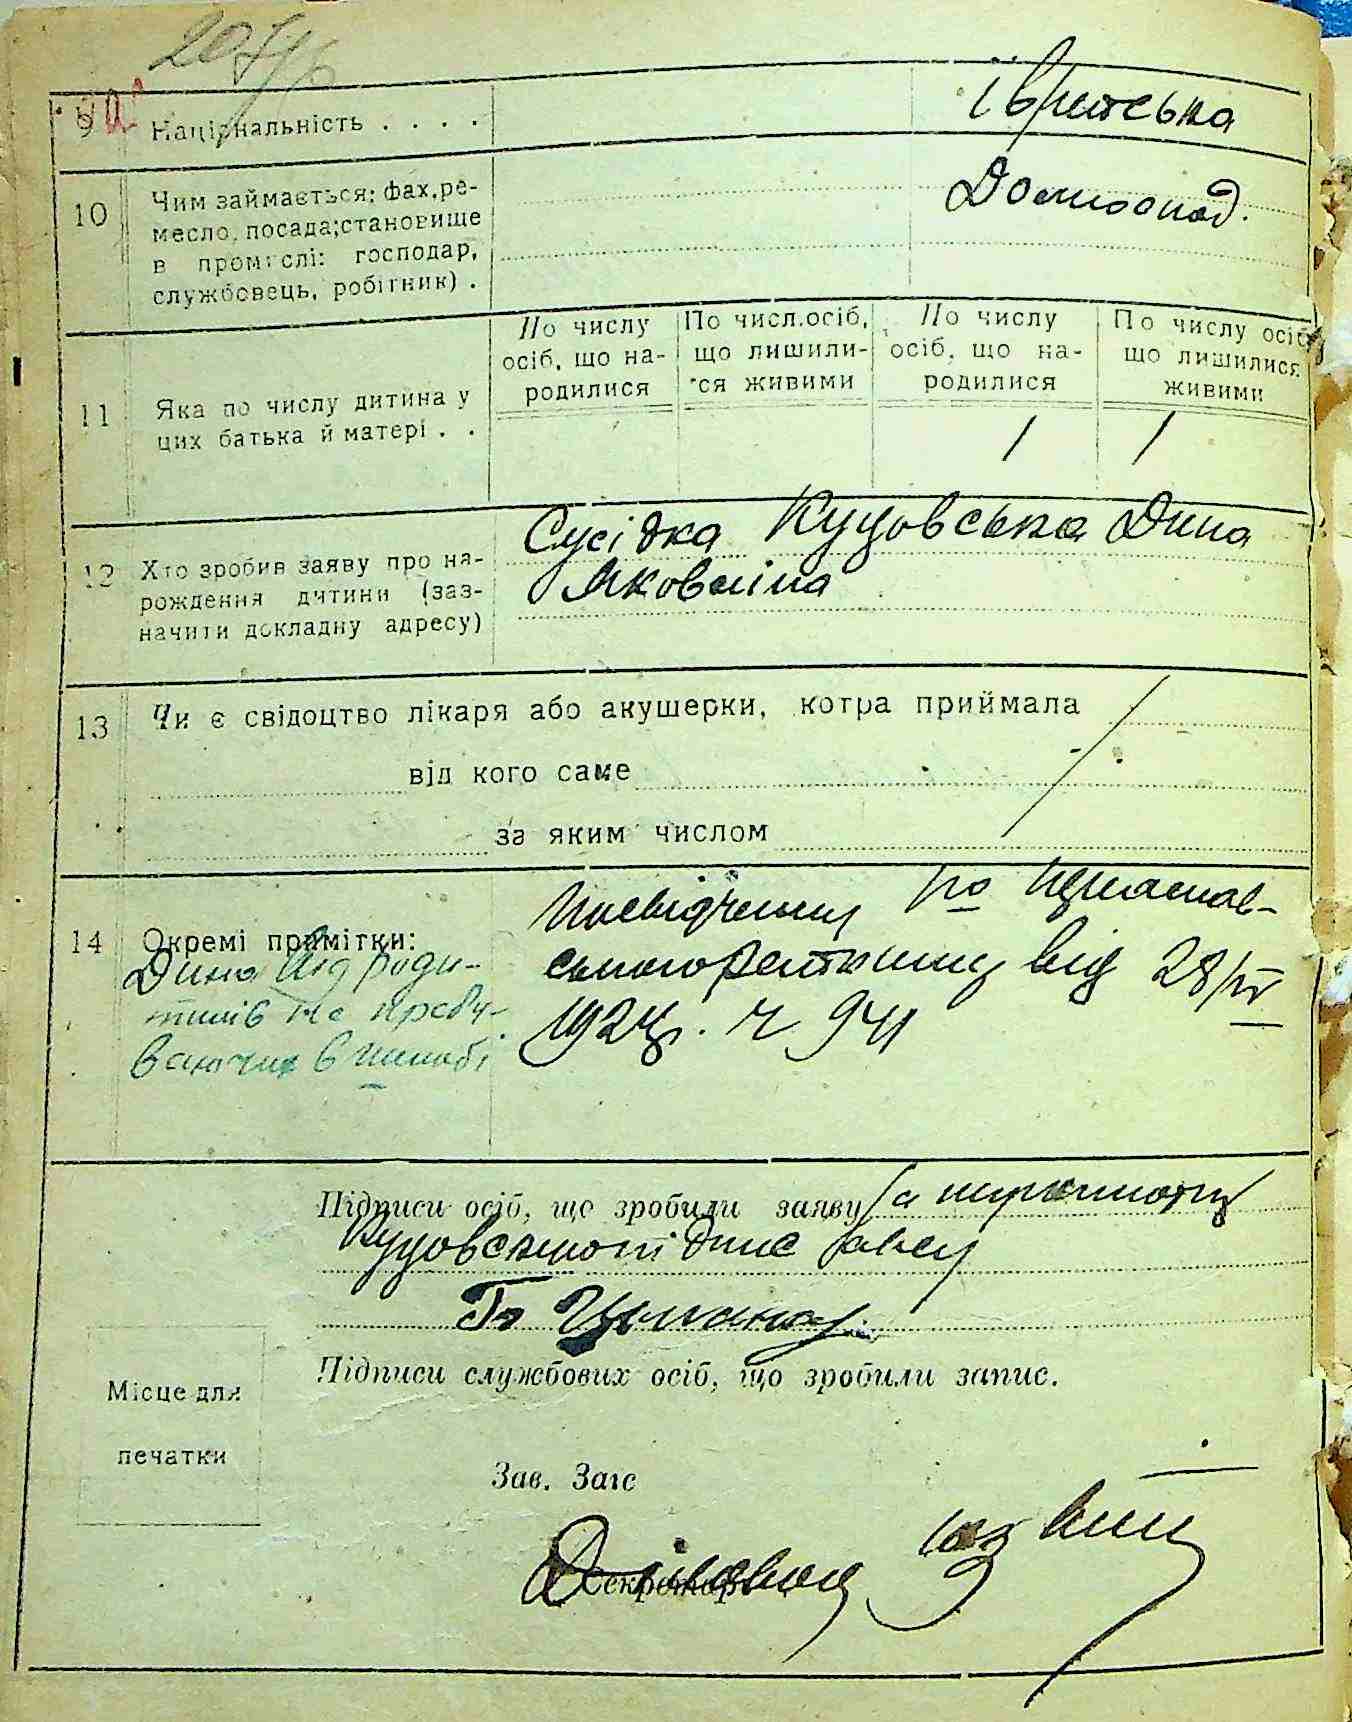 207
9 Національність . . . . Івритська
10 Чим займається; фах, ре-
месло, посада; становище
в промислі: господар,
службовець, робітник) .
Домогоспод.
11 Яка по числу дитина у
цих батька й матері . .
По числу
осіб, що на-
родилися
По числ. осіб,
що лишили-
ся живими
По числу
осіб, що на-
родилися
По числу осіб
що лишилися
живими
1 1
12 Хто зробив заяву про на-
рождення дитини (заз-
начити докладну адресу)
Сусідка Куцовська Дина
Яковліна
13 Чи є свідоцтво лікаря або акушерки, котра приймала
від кого саме
за яким числом
14 Окремі примітки:
Дина від роди-
телів не пребу-
ваючих в шлюбі
Посвідчення по
від 28/IV
1924р. ч 941
Підписи осіб, що зробили заяву За неграмотну
Куцовську
Підписи службових осіб, що зробили запис.
Місце для
печатки
Зав. Загс
Секретар